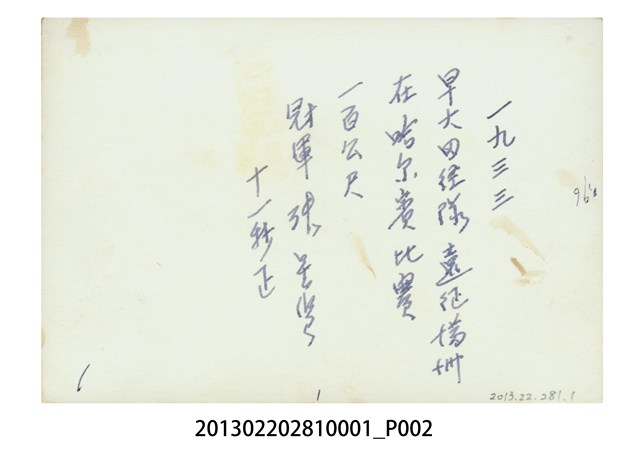 一九三三
早大田径隊遠征滿洲
在哈尔賓比賽
一百公尺
冠軍 張星賢
十一秒正
2013.22.281.1
201302202810001_P002